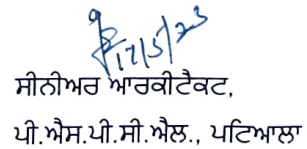 17/5/23
ਸੀਨੀਅਰ ਆਰਕੀਟੈਕਟ,
ਪੀ.ਐਸ.ਪੀ.ਸੀ.ਐਲ., ਪਟਿਆਲਾ